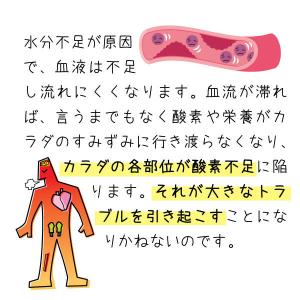 水分不足が原因
で、血液は不足
し流れにくくなります。血流が滞れ
ば、言うまでもなく酸素や栄養がカ
ラダのすみずみに行き渡らなくなり、
カラダの各部位が酸素不足に陥
ります。それが大きなトラ
ブルを引き起こすことにな
りかねないのです。